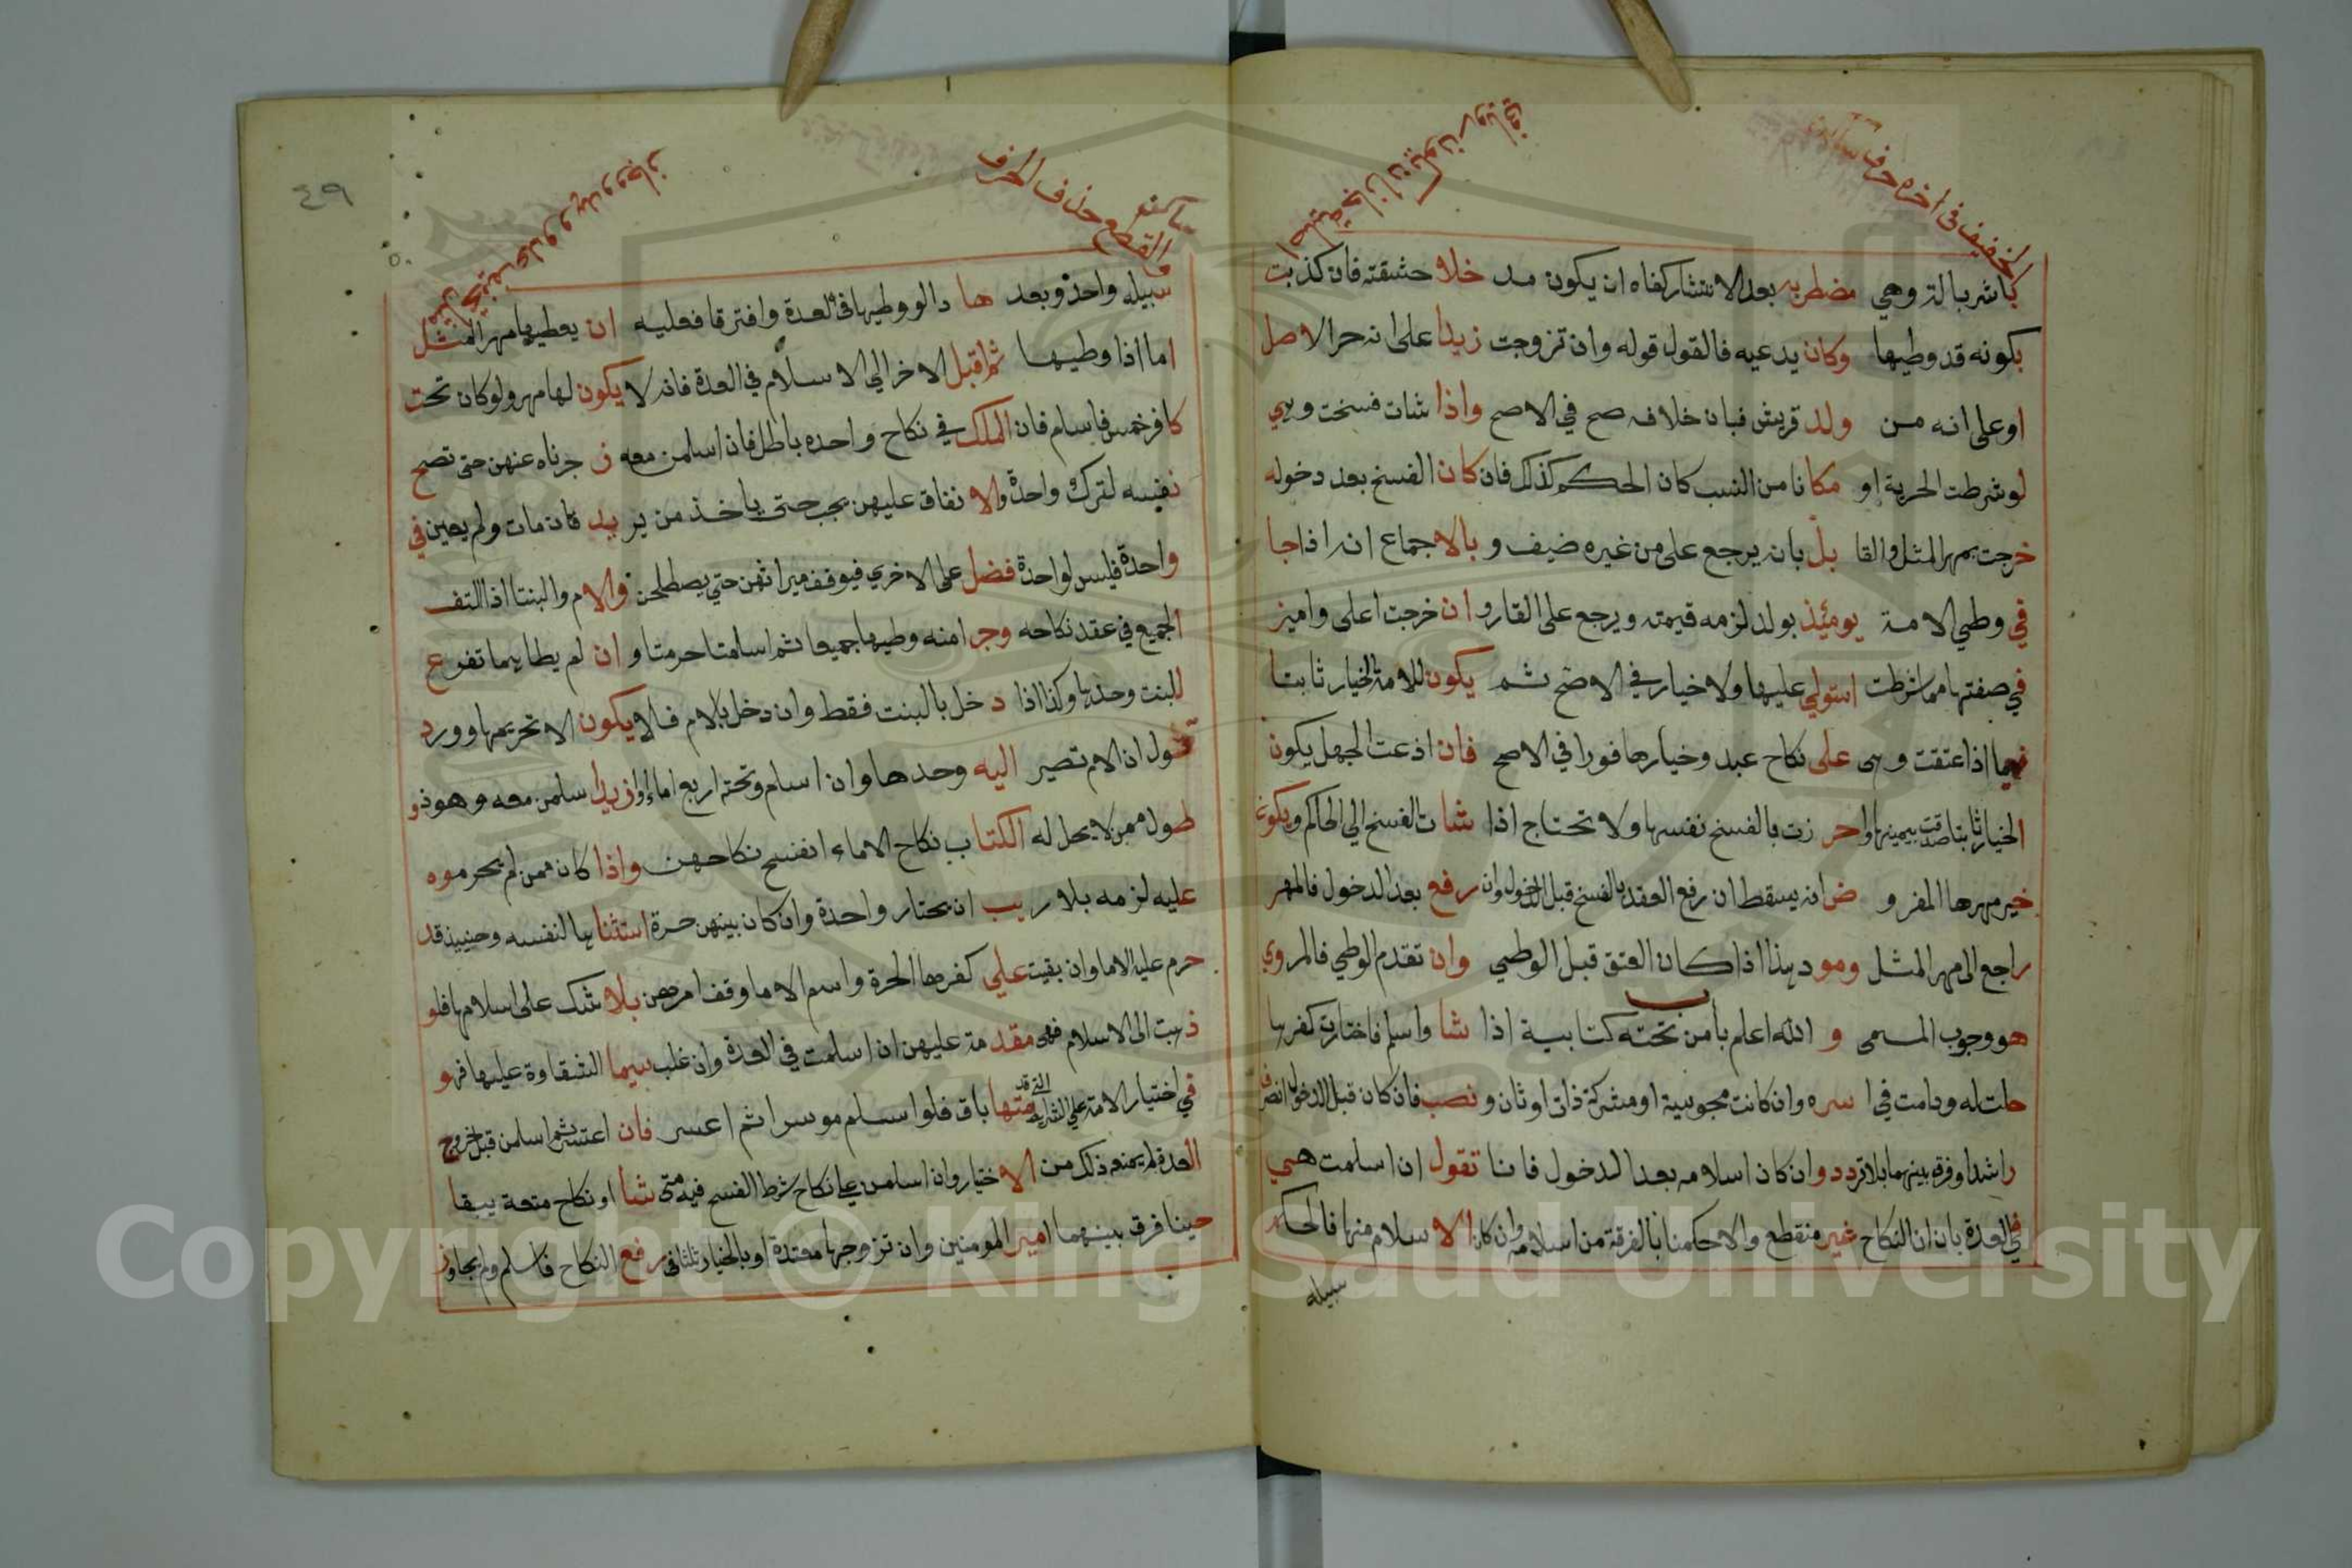 الخفيف في اخره حرف ساكن
اصلية جاز ان يكون رويا في
باشر بالة وهي مضطربه بعد الانتشار كفاه ان يكون مد خلا حشفته فان كذبت
بكونه قد وطيها وكان يدعيه فالقول قوله وان تزوجت زيدا على انه حر الاصل
او على انه من ولد قريش فبان خلافه صح في الاصح واذا شات فسخت وهي
لو شرطت الحرية او مكانا من النسب كان الحكم كذلك فان كان الفسخ بعد دخوله
خرجت بمهر المثل والقا بل بان يرجع على من غيره ضيف و بالاجماع انه اذا جا
في وطي الامة يومئذ بولد لزمه قيمته ويرجع على القار وا ن خرجت اعلى واميز
في صفتها مما شرطت استولي عليها ولا خيار في الاصح ثم يكون للامة الخيار ثابتا
فيما اذا عتقت وهي على نكاح عبد وخيارها فورا في الاصح فان ادعت الجهل يكون
الخيار ثابتا صدقت بيمينها واحر زت بالفسخ نفسها ولا تحتاج اذا شا ت الفسخ الي الحاكم ويكون
خير مهرها المفرو ض انه يسقط ان رفع العقد بالفسخ قبل الدخول وان رفع بعد الدخول فالمهر
راجع الى مهر المثل ومود هذا اذا كان العتق قبل الوطي وان تقدم الوطي فالمروي
هو وجوب المسمى و الله اعلم باب من تحته كتابية اذا شا واسلم فاختارت كفرها
حلت له ودامت في ا سره وان كانت مجوسية او مشركة ذات اوثان و نصب فان كان قبل الدخول انصرف
راشدا وفرقه بينهما بلا تردد وان كان اسلامه بعد الدخول فانا تقول ان اسلمت هي
في العدة بان ان النكاح غير منقطع والا حكمنا بالفرقة من اسلامه وان كان الا سلام منها فالحكم
سبيله
٤٩
والقطع حذف الحرف
ساكنه
سبيله واحد وبعد هذا لو وطيها في العدة وافترقا فعليه ان يعطيها مهر المثل
اما اذا وطيها ثم اقبل الاخر الي الاسلام في العدة فانه لا يكون لها مهر ولو كان تحت
كافر خمس فاسلم فان الملك في نكاح واحده باطل فان اسلمن معه ز جرناه عنهن حتى تصح
نفسه لترك واحدة والا نفاق عليهن يجب حتى ياخذ من ير يد فان مات ولم يعين في
واحدة فليس لواحدة فضل على الاخري فيوقف ميراثهن حتي يصطلحن والام والبنت اذا التف
الجميع في عقد نكاحه وجر امنه وطيها جميعا ثم اسلمتا حرمتا وان لم يطا بهما تفرع
للبنت وحدها وكذا اذا د خل بالبنت فقط وان دخل بالام فلا يكون الا تحريمها وورد
قول ان الام تصير اليه وحدها وان اسلم وتحته اربع اماء او ازيدا سلمن معه وهو ذو
طول ممن لا يحل له الكتاب نكاح الاماء انفسخ نكاحهن واذا كان ممن لم يحرموه
عليه لزمه بلا ريب ان يختار واحدة وان كان بينهن حرة استثناها لنفسه وحينيذ قد
حرم عليه الاما وان بقيت علي كفرها الحرة واسم الاما وقف امرهن بلا شك على اسلامها فلو
ذهبت الى الاسلام فهي مقدمة عليهن ان اسلمت في العدة وان غلب سيما الشقاوة عليها فهو
في اختيار الامة علي الشرايط التي قد متها باق فلو اسلم موسرا ثم اعسر فان اعتسر ثم اسلمن قبل خروج
العدة لم يمنع ذلك من الا ختيار وان اسلمن علي نكاح شرط الفسح فيه متى شا او نكاح متعة يبقا
حينا فرق بينهما امير المومنين وان تزوجها معتدة او بالخيار ثلثا في رفع النكاح فاسلم ولم يجاوز